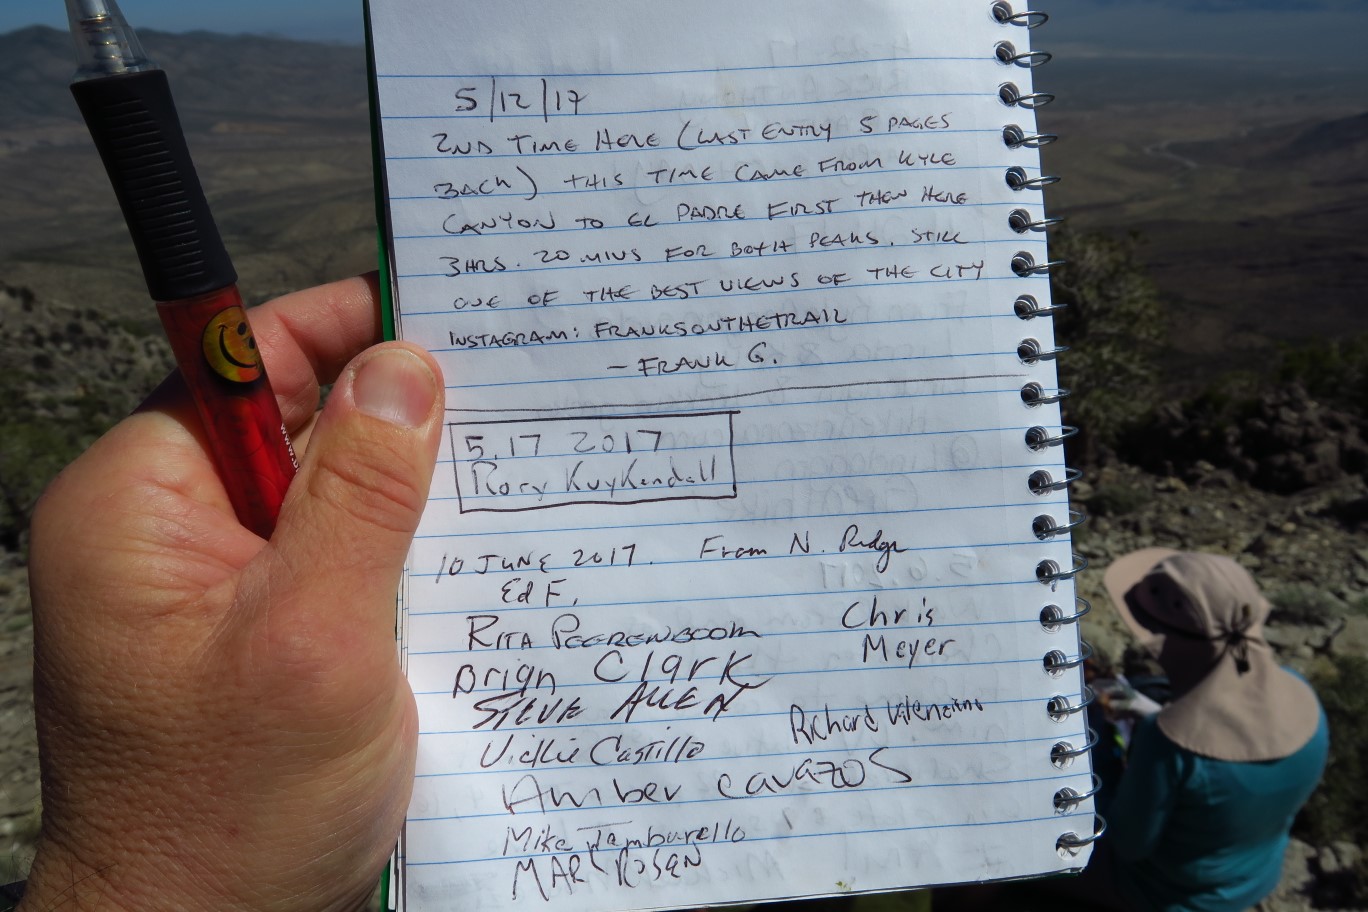 5/12/17
2ND TIME HERE (LAST ENTRY 5 PAGES
BACK) THIS TIME CAME FROM KYLE
CANYON TO EL PADRE FIRST THEN HERE
3HRS. 20 MINS FOR BOTH PEAKS. STILL
ONE OF THE BEST VIEWS OF THE CITY
INSTAGRAM: FRANKSONTHETRAIL
— FRANK G.
5.17 2017
Rory Kuykendall
10 JUNE 2017. From N. Ridge
Ed F.
RITA PEERENBOOM
Chris
Meyer
Brian Clark
STEVE ALLEN
Richard Valenzino
Vickie Castillo
Amber Cavazos
Mike Tamburello
MARK ROSEN
www.